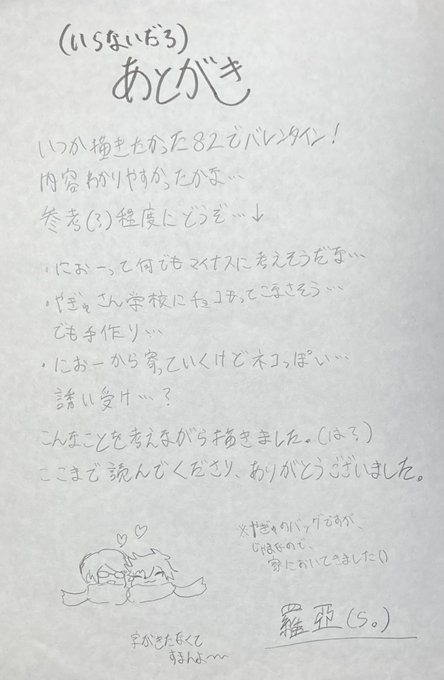 (いらないだろ)
あとがき
いつか描きたかった82でバレンタイン!
内容わかりやすかったかな…
参考(?)程度にどうぞ…↓
・におーって何でもマイナスに考えそうだな…
・やぎゅさん学校にチョコもってこなさそう…
でも手作り…
・におーから寄っていくけどネコっぽい…
誘い受け…?
こんなことを考えながら描きました。(は?)
ここまで読んでくださり、ありがとうございました。
※やぎゅのバッグですが、
じゃまなので、
家においてきました()
字がきたなくて
すまんよ〜〜
羅亜(S。)